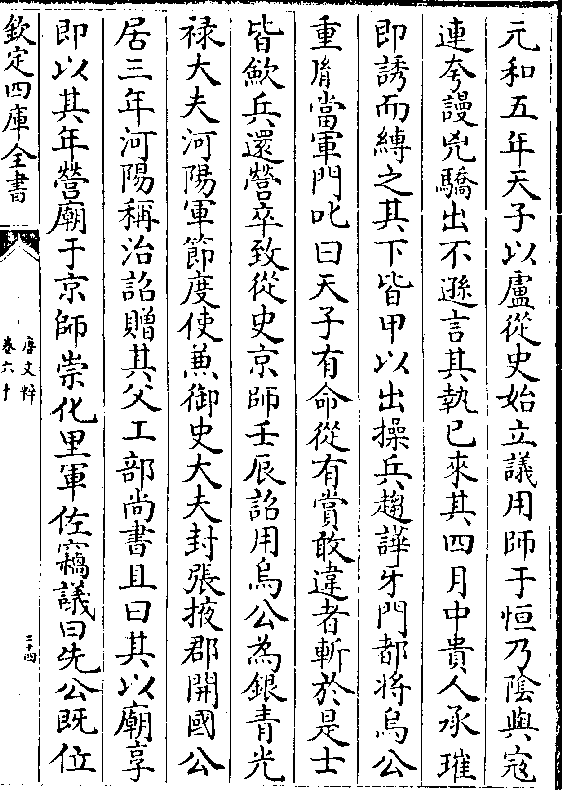 元和五年天子以盧從史始立議用師于恒乃陰與寇
連夸謾兇驕出不遜言其執已來其四月中貴人承璀
即誘而縛之其下皆甲以出操兵趨譁牙門都將烏公
重胤當軍門叱曰天子有命從有賞敢違者斬於是士
皆歛兵還營卒致從史京師壬辰詔用烏公為銀青光
禄大夫河陽軍節度使兼御史大夫封張掖郡開國公
居三年河陽稱治詔贈其父工部尚書且曰其以廟享
即以其年營廟于京師崇化里軍佐竊議曰先公既位
欽定四庫全書
唐文粹
卷六十
三十四